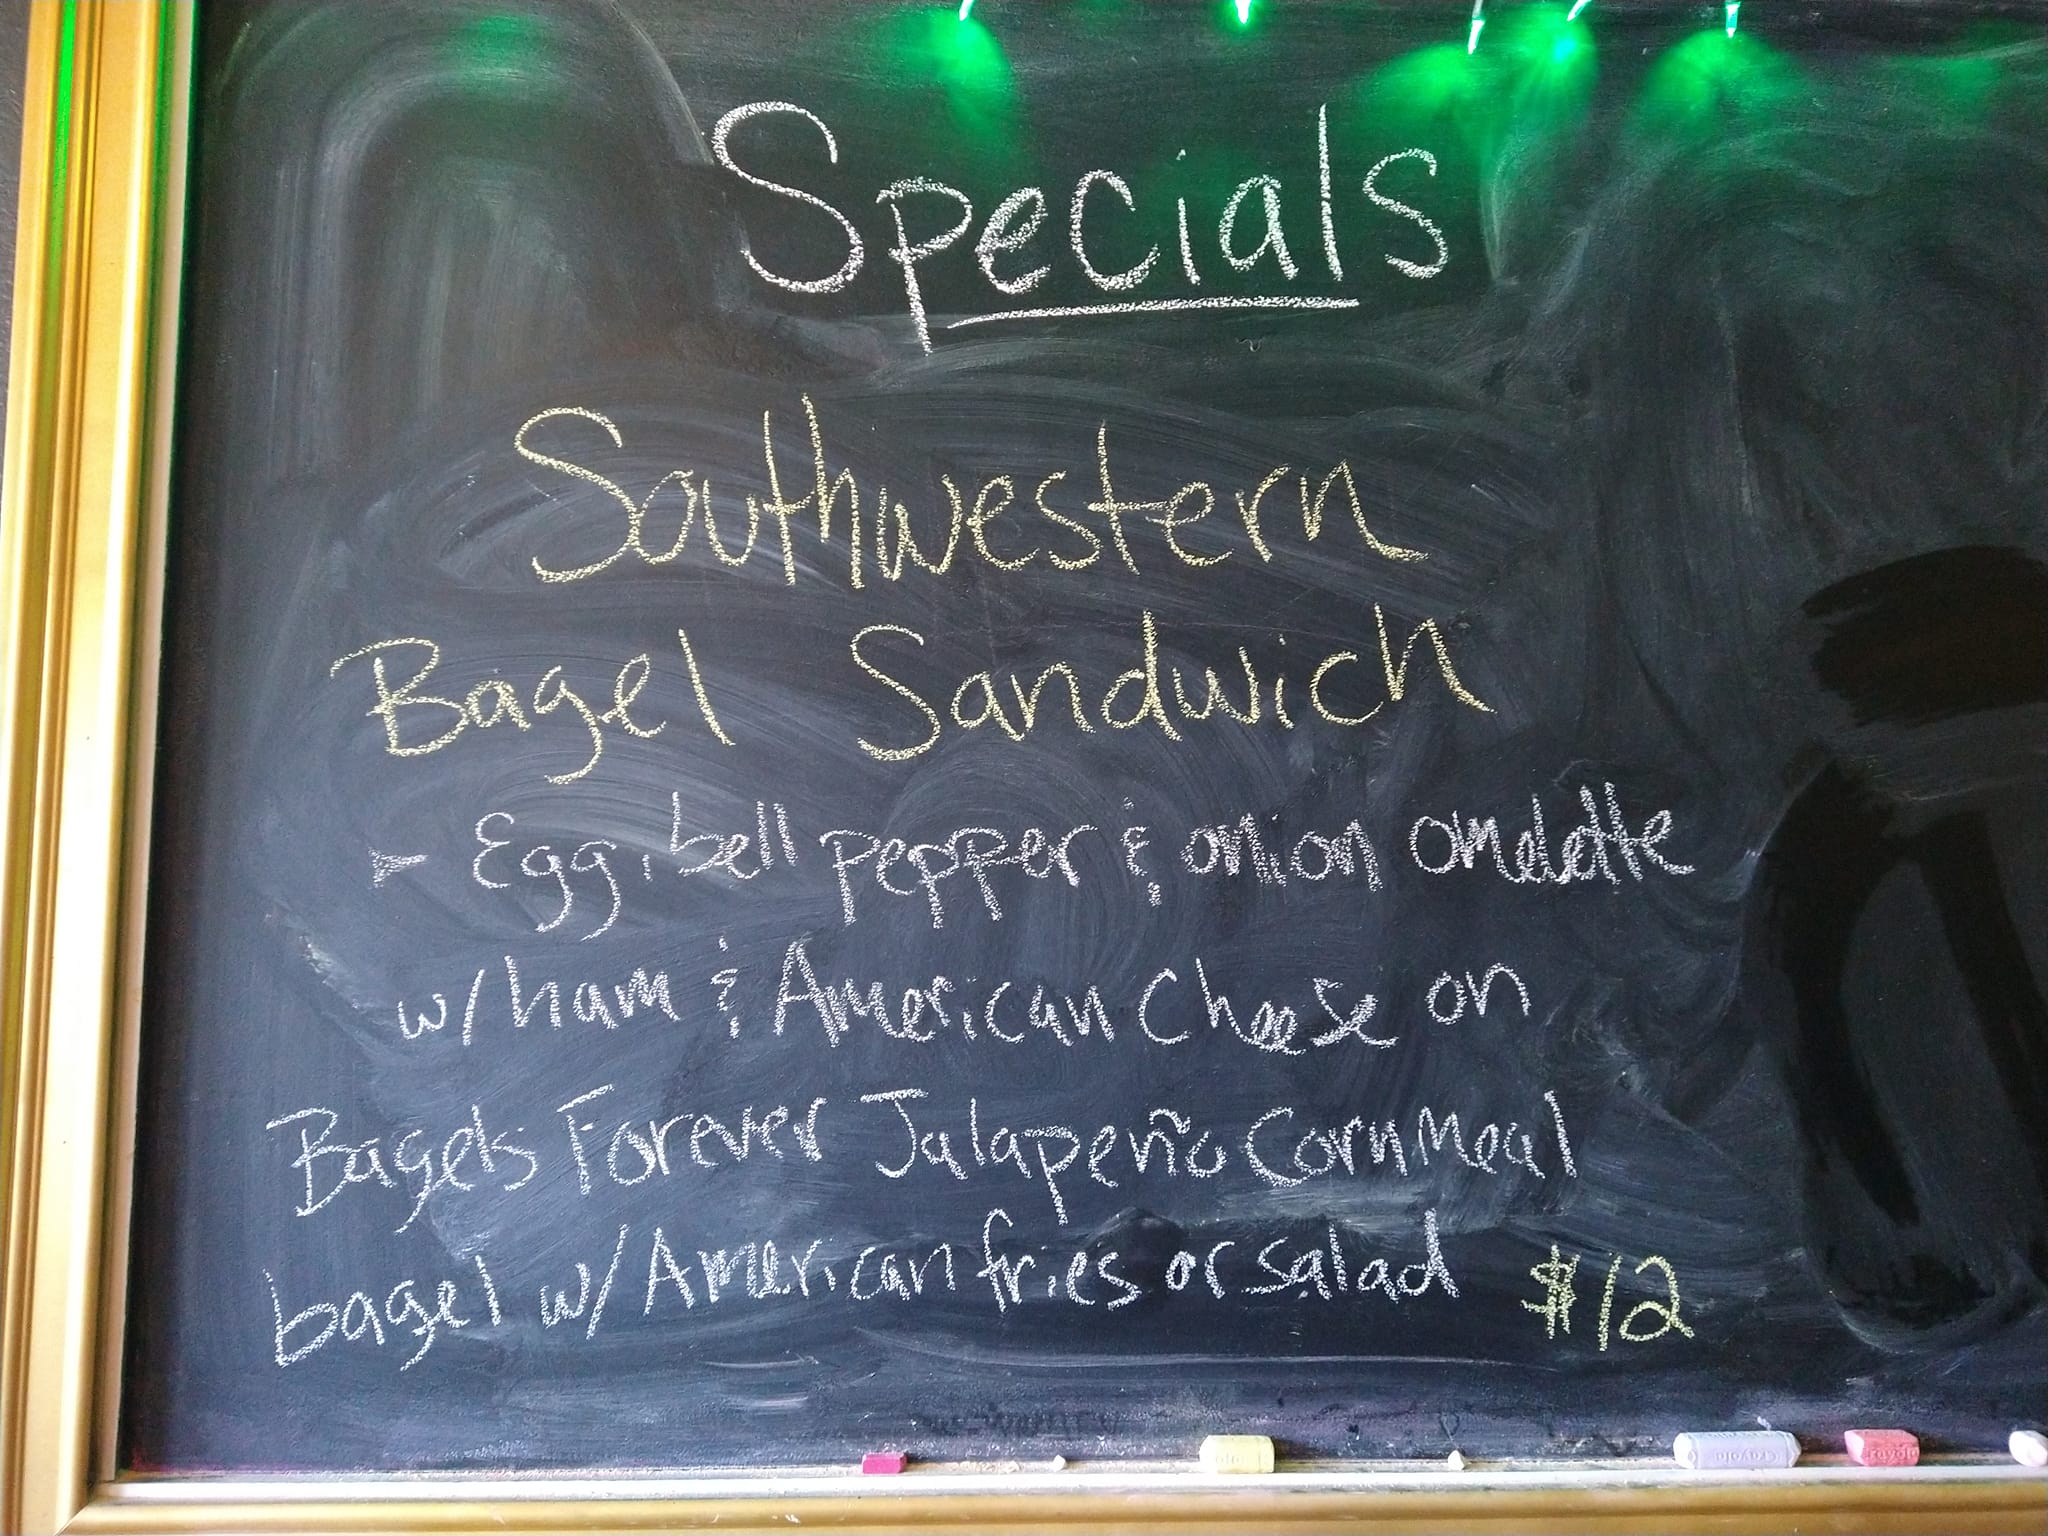 Specials
Southwestern
Bagel Sandwich
- Egg, bell pepper & onion omelette
w/ ham & American Cheese on
Bagels Forever Jalapeño Cornmeal
bagel w/ American fries or salad $12
Crayola